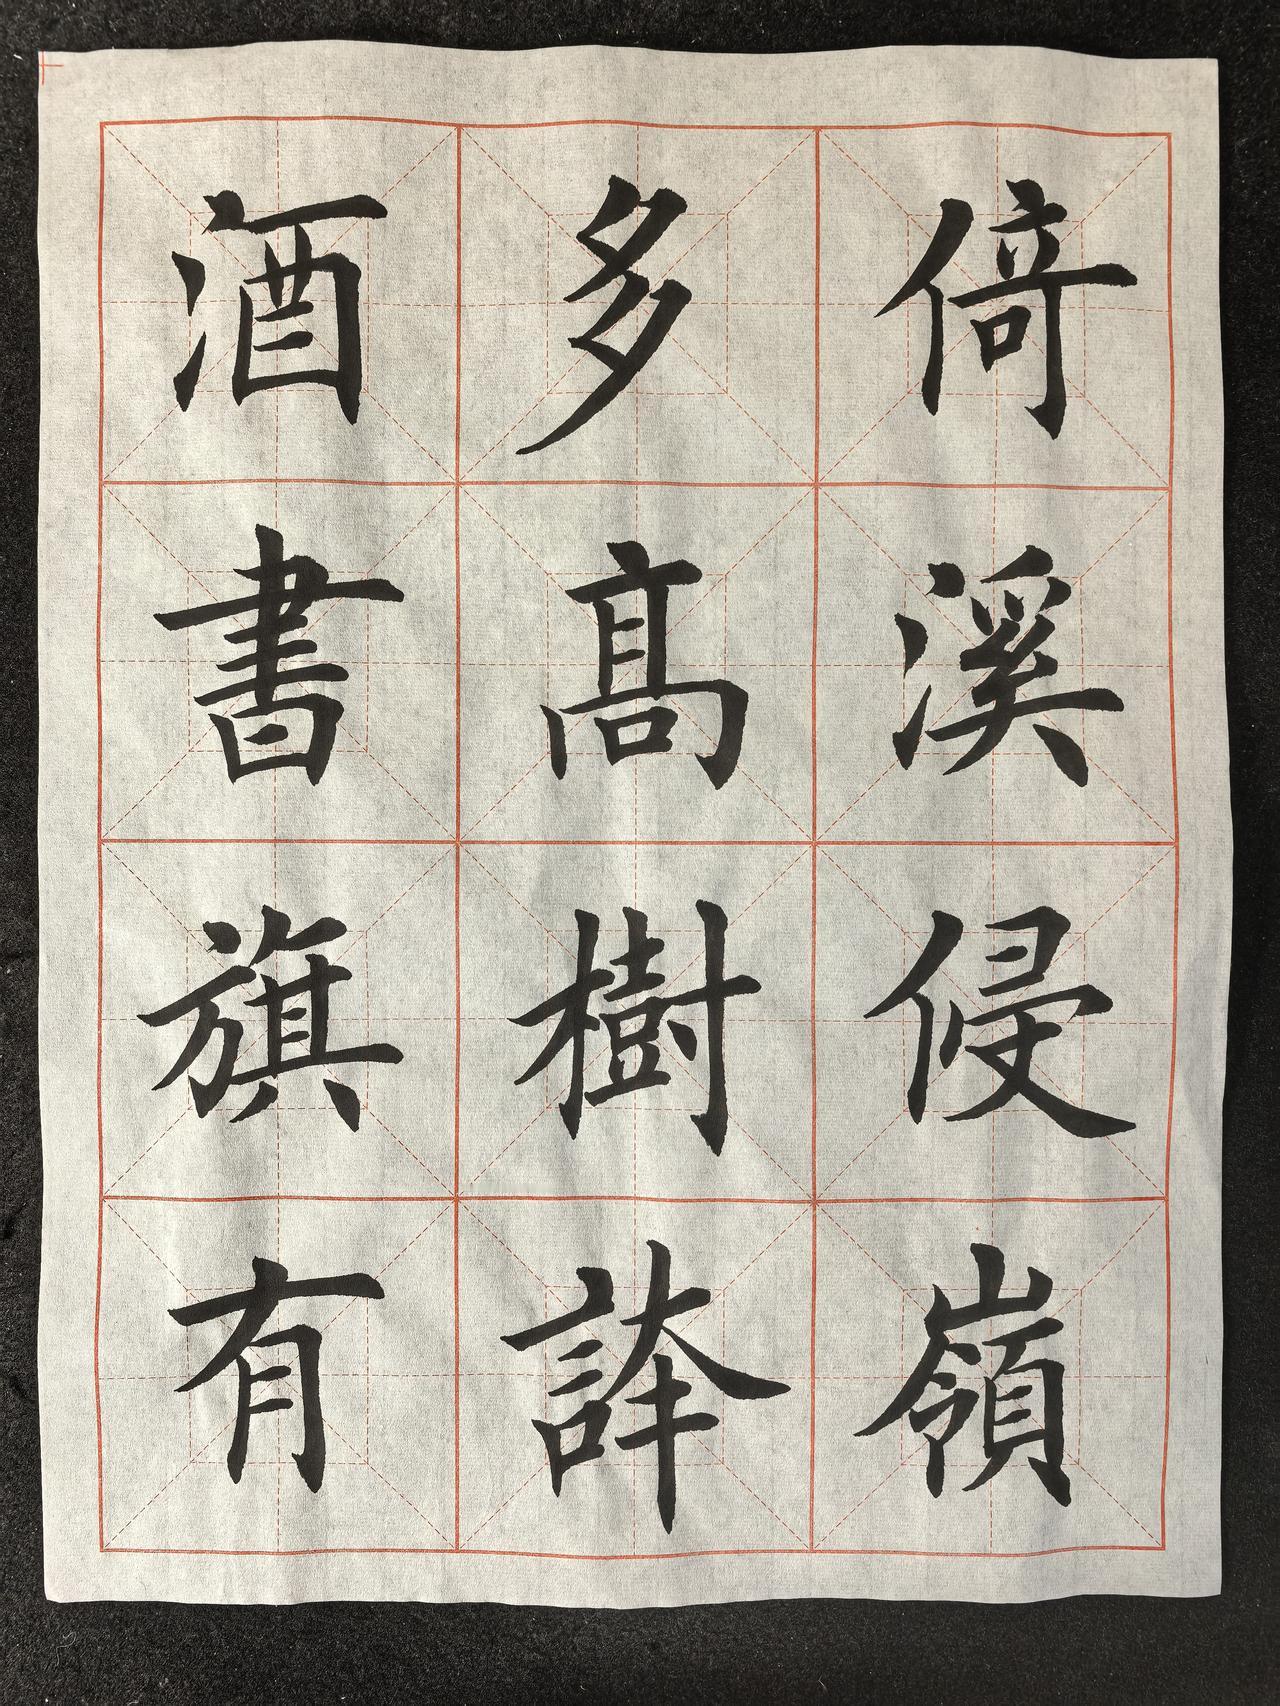 倚溪侵嶺
多髙樹誇
酒書旗有